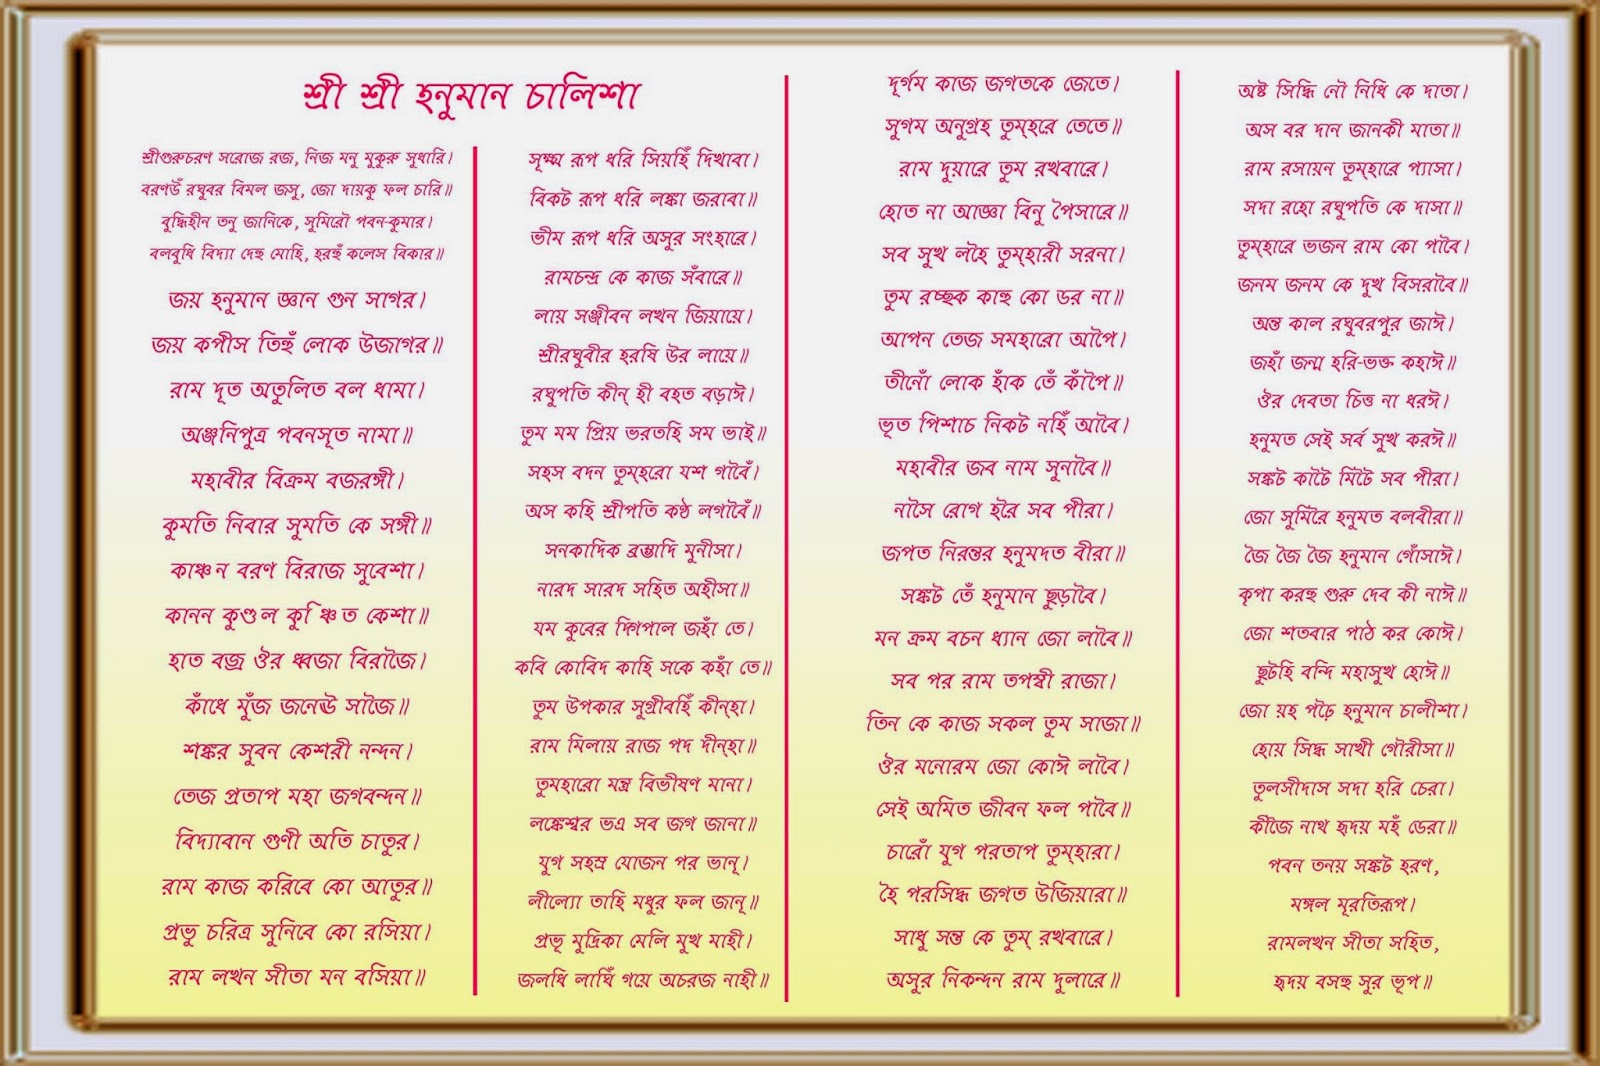 শ্রী শ্রী হনুমান চালিশা
শ্রীগুরুচরণ সরোজ রজ, নিজ মনু মুকুরু সুধারি।
বরণউঁ রঘুবর বিমল জসু, জো দায়কু ফল চারি॥
বুদ্ধিহীন তনু জানিকে, সুমিরৌ পবন-কুমার।
বলবুধি বিদ্যা দেহু মোহি, হরহুঁ কলেস বিকার॥
জয় হনুমান জ্ঞান গুন সাগর।
জয় কপীস তিহুঁ লোক উজাগর॥
রাম দূত অতুলিত বল ধামা।
অঞ্জনিপুত্র পবনসূত নামা॥
মহাবীর বিক্রম বজরঙ্গী।
কুমতি নিবার সুমতি কে সঙ্গী॥
কাঞ্চন বরণ বিরাজ সুবেশা।
কানন কুণ্ডল কুঞ্চিত কেশা॥
হাত বজ্র ঔর ধ্বজা বিরাজৈ।
কাঁধে মুঁজ জনেঊ সাজৈ॥
শঙ্কর সুবন কেশরী নন্দন।
তেজ প্রতাপ মহা জগবন্দন॥
বিদ্যাবান গুণী অতি চাতুর।
রাম কাজ করিবে কো আতুর॥
প্রভু চরিত্র সুনিবে কো রসিয়া।
রাম লখন সীতা মন বসিয়া॥
সূক্ষ্ম রূপ ধরি সিয়হিঁ দিখাবা।
বিকট রূপ ধরি লঙ্কা জরাবা॥
ভীম রূপ ধরি অসুর সংহারে।
রামচন্দ্র কে কাজ সঁবারে॥
লায় সঞ্জীবন লখন জিয়ায়ে।
শ্রীরঘুবীর হরষি উর লায়ে॥
রঘুপতি কীন্ হী বহত বড়াঈ।
তুম মম প্রিয় ভরতহি সম ভাই॥
সহস বদন তুম্হরো যশ গাবৈঁ।
অস কহি শ্রীপতি কণ্ঠ লগাবৈঁ॥
সনকাদিক ব্রম্ভাদি মুনীসা।
নারদ সারদ সহিত অহীসা॥
যম কুবের দিগপাল জহাঁ তে।
কবি কোবিদ কাহি সকে কহাঁ তে॥
তুম উপকার সুগ্রীবহিঁ কীন্হা।
রাম মিলায় রাজ পদ দীন্হা॥
তুমহারো মন্ত্র বিভীষণ মানা।
লঙ্কেশ্বর ভএ সব জগ জানা॥
যুগ সহস্র যোজন পর ভানূ।
লীল্যো তাহি মধুর ফল জানূ॥
প্রভূ মুদ্রিকা মেলি মুখ মাহী।
জলধি লাঘিঁ গয়ে অচরজ নাহী॥
দূর্গম কাজ জগতকে জেতে।
সুগম অনুগ্রহ তুম্হরে তেতে॥
রাম দুয়ারে তুম রখবারে।
হোত না আজ্ঞা বিনু পৈসারে॥
সব সুখ লহৈ তুম্হারী সরনা।
তুম রচ্ছক কাহু কো ডর না॥
আপন তেজ সমহারো আপৈ।
তীনোঁ লোক হাঁক তেঁ কাঁপৈ॥
ভূত পিশাচ নিকট নহিঁ আবৈ।
মহাবীর জব নাম সুনাবৈ॥
নাসৈ রোগ হরৈ সব পীরা।
জপত নিরন্তর হনুমদত বীরা॥
সঙ্কট তেঁ হনুমান ছুড়াবৈ।
মন ক্রম বচন ধ্যান জো লাবৈ॥
সব পর রাম তপস্বী রাজা।
তিন কে কাজ সকল তুম সাজা॥
ঔর মনোরম জো কোঈ লাবৈ।
সেই অমিত জীবন ফল পাবৈ॥
চারোঁ যুগ পরতাপ তুম্হারা।
হৈ পরসিদ্ধ জগত উজিয়ারা॥
সাধু সন্ত কে তুম্ রখবারে।
অসুর নিকন্দন রাম দুলারে॥
অষ্ট সিদ্ধি নৌ নিধি কে দাতা।
অস বর দান জানকী মাতা॥
রাম রসায়ন তুম্হারে প্যাসা।
সদা রহো রঘুপতি কে দাসা॥
তুম্হারে ভজন রাম কো পাবৈ।
জনম জনম কে দুখ বিসরাবৈ॥
অন্ত কাল রঘুবরপুর জাঈ।
জহাঁ জন্ম হরি-ভক্ত কহাঈ॥
ঔর দেবতা চিত্ত না ধরঈ।
হনুমত সেই সর্ব সুখ করঈ॥
সঙ্কট কাটৈ মিটৈ সব পীরা।
জো সুমিরৈ হনুমত বলবীরা॥
জৈ জৈ জৈ হনুমান গোঁসাঈ।
কৃপা করহু গুরু দেব কী নাঈ॥
জো শতবার পাঠ কর কোঈ।
ছুটহি বন্দি মহাসুখ হোঈ॥
জো য়হ পঢ়ৈ হনুমান চালীশা।
হোয় সিদ্ধ সাখী গৌরীসা॥
তুলসীদাস সদা হরি চেরা।
কীজৈ নাথ হৃদয় মহঁ ডেরা॥
পবন তনয় সঙ্কট হরণ,
মঙ্গল মূরতিরূপ।
রামলখন সীতা সহিত,
হৃদয় বসহু সুর ভূপ॥